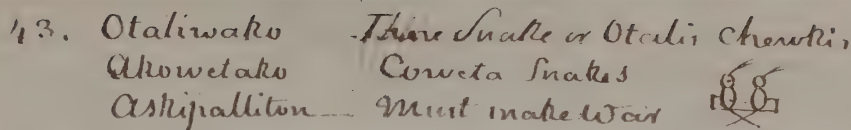 43. Otaliwako Snake or Otalis
Akowetako Coweta Snakes
Askipalliton --- Must make War